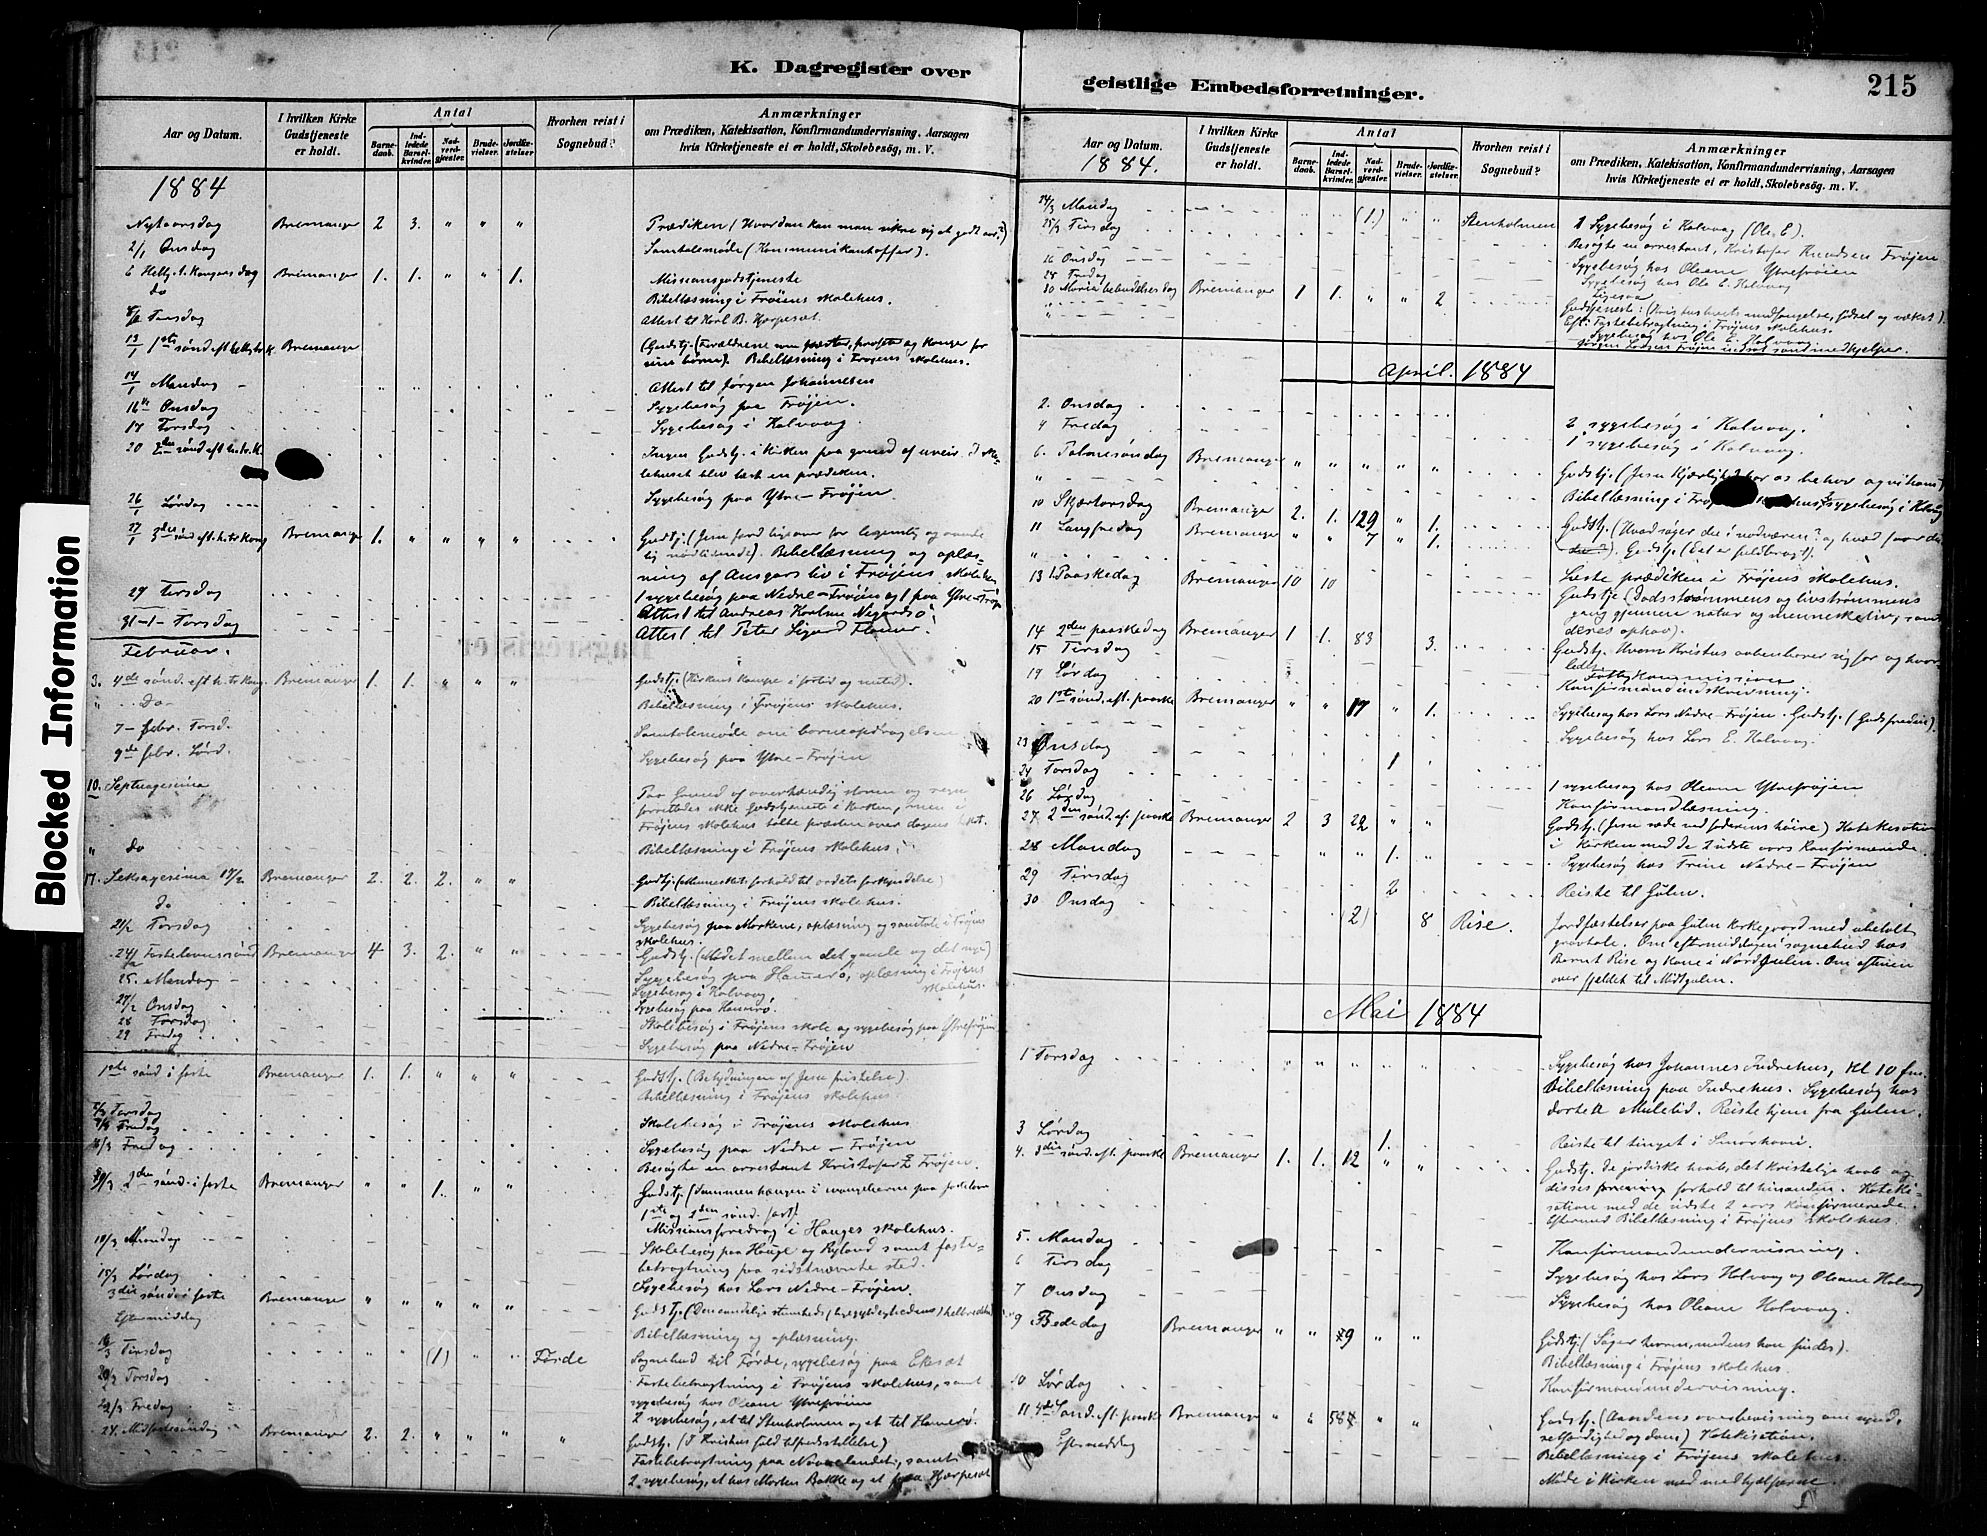 215
K. Dagregister over geistlige Embedsforretninger.
Aar og Datum. I hvilken Kirke Gudstjeneste er holdt. Antal Barnedaab. Indledede Barselkvinder. Nadverdgjæster. Brudevielser. Jordfæstelser. Hvorhen reist i Sognebud? Anmærkninger om Prædiken, Katekisation, Konfirmandundervisning, Aarsagen hvis Kirketjeneste ei er holdt, Skolebesøg, m. V.
1884
Nytaarsdag Bremanger 2 3. " " " Prædiken (Hvordan kan man sikre sig et godt aar?)
2/1 Onsdag Samtalemøde (Kommunikantoffer).
6 Hellig 3 Kongersdag Bremanger 1. 1. " " 1. Missionsgudstjeneste
do Bibellæsning i Frøiens skolehus.
Torsdag Attest til Karl B. Hjorpeset.
13/1 1ste sønd. eft. helligtrek. Bremanger Gudstj. (Forældrene som præster, profeter og konger for sine børn). Bibellæsning i Frøjens skolehus.
14/1 Mandag Attest til Jørgen Johannesen
16de Onsdag Sygebesøg paa Frøjen.
17 Torsdag Sygebesøg i Kalvaag.
20 2den sønd. eft. h. tr. K. Ingen Gudstj. i Kirken paa grund af uveir. I skolehuset blev læst en prædiken.
26/1 Lørdag Sygebesøg paa Ytre-Frøjen
27/1 3die sønd. eft. h. tr. Kong Bremanger 1. " " " "
Bibellæsning og oplæsning af Ansgars liv i Frøjens skolehus
29 Tirsdag 1 sygebesøg paa Nedre-Frøjen og 1 paa Ytre-Frøjen
Attest til Andreas
31-1- Torsdag Attest til Peter Sigurd
Februar.
3. 4de sønd. eft. h. tr. Kong. Bremanger 1. 1. " " " Gudstj. (Kirkens kampe i fortid og nutid).
" Do Bibellæsning i Frøjens skolehus.
7- febr. Torsd. Samtalemøde om barneopdragelsen
9de febr. Lørd. Sygebesøg paa Ytre-Frøjen
10. Septuagesima Paa Grund af overhændig storm og regn forrettedes ikke Gudstjeneste i Kirken, men i Frøjens skolehus talte præsten over dagens tekst.
" do Bibellæsning i Frøjens skolehus.
17. Seksagesima 17/2 Bremanger 2. 2. 2. " " Gudstj. (Menneskets forhold til ordets forkyndelse)
do Bibellæsning i Frøjens skolehus.
21/2 Torsdag Sygebesøg paa Markene, oplæsning og samtale i Frøjens skolehus.
24/2 Fastelavnssønd Bremanger 4 3. 2. " " Gudstj. (Mødet mellem det gamle og det nye)
25. Mandag Sygebesøg paa Hamarø, oplæsning i Frøjens skolehus.
Sygebesøg i Kalvaag
27/2 Onsdag Sygebesøg paa Hamarø.
28 Torsdag Skolebesøg i Frøjens skole og sygebesøg paa Ytrefrøjen
29 Fredag Sygebesøg paa Nedre-Frøjen
1ste sønd i faste Bremanger 1. 1. " " " Gudstj. (Betydningen af Jesu fristelse).
Bibellæsning i Frøjens skolehus.
Torsdag Skolebesøg i Frøjens skolehus
Fredag Sygebesøg paa Nedre-Frøjen
Fredag Besøgte en arrestant Kristofer K Frøjen.
9/3 2den sønd. i faste Bremanger " " 1. " " Gudstj. (Sammenhængen i evangelierne paa fastelavn 1ste og 2den sønd. fast).
Missionsforedrag i Hauges skolehus.
10/3 Mandag Skolebesøg paa Hauge og Ryland samt fastebetragtning paa sidstnævnte sted.
15/3 Lørdag Sygebesøg hos Lars Nedre-Frøjen.
3die sønd i faste Bremanger " " " " "
Eftermiddag Bibellæsning og oplæsning.
18/3 Tirsdag " " (1) " " Førde Sognebud til Førde, sygebesøg paa Ekeset
20/3 Torsdag Fastebetragtning i Frøjens skolehus, samt sygebesøg hos Oleane Ytrefrøien
Fredag 2 sygebesøg, et til Stenholmen og et til Hamarø.
24. Midfastesøndag Bremanger 2. 2. " " " "
Fastebetragtning paa samt
2 sygebesøg, et hos Morten Bakke og et paa Hjorpeset
Aar og Datum. I hvilken Kirke Gudstjeneste er holdt. Antal Barnedaab. Indledede Barselkvinder. Nadverdgjæster. Brudevielser. Jordfæstelser. Hvorhen reist i Sognebud? Anmærkninger om Prædiken, Katekisation, Konfirmandundervisning, Aarsagen hvis Kirketjeneste ei er holdt, Skolebesøg. m. V.
1884.
24/3 Mandag (1.) " " Stenholmen 1 Sygebesøg i Kalvaag (Ole E).
25/3 Tirsdag Besøgte en arrestant, Kristofer Knudsen Frøjen
Onsdag Sygebesøg hos Oleane Ytrefrøien
28 Fredag Sygebesøg hos Ole E. Kalvaag
30 Maria bebudelsesdag Bremanger 1 1. " " 2 Gudstjeneste:
Eft: Fastebetragtning i Frøjens skolehus.
Sygebesøg hos Ole E. Kalvaag
April. 1884
2. Onsdag 2 sygebesøg i Kalvaag.
4 Fredag 1 sygebesøg i Kalvaag.
6. Palmesøndag Bremanger " " " " " Gudstj. (Jesu Kjærlighed
Bibellæsning i Frøjens
10 Skjærtorsdag Bremanger 2. 1. 129 " 1. Gudstj. (Hvad søger du i nadveren? og hvad faar du
11 Langfredag Bremanger " " 7 " 1. Gudstj. (Det er fuldbragt).
" Læste prædiken i Frøjens skolehus.
13 1 Paaskedag Bremanger 10 10 Gudstje (Dødsstrømmens og livstrømmens gang gjennem natur og menneskeliv, samt deres ophav).
14 2den paaskedag Bremanger 1 1. 83 3. Gudstj. Hvem Kristus aabenbarer sig for og hvorledes
15 Tirsdag Fattigkommission
19 Lørdag Konfirmandindskrivning.
20 1ste sønd. eft. paaske Bremanger " " 17 " 1. Sygebesøg hos Lars Nedre-Frøjen. Gudstj. (Gudsfreden).
23 Onsdag Sygebesøg hos Lars E. Kalvaag.
24 Torsdag 1 1 sygebesøg hos Oleane Ytrefrøjen
26 Lørdag Konfirmandlæsning.
27 2den sønd. eft. paaske Bremanger 2 3 22 " " Gudstj. (Jesu sæde ved faderens høire) Katekisation i Kirken med de 2 sidste aars Konfirmerede.
28 Mandag " " 1. " Sygebesøg hos Trine Nedre-Frøjen
29 Tirsdag 2 Reiste til Gulen.
30 Onsdag (2) 8 Rise. Jordfæstelser paa Gulen Kirkegaard med ubetalt gravtale. Om eftermiddagen sognebud hos Bernt Rise og Kone i Nordgulen. Om aftenen over fjeldet til Midtgulen.
Mai 1884
1 Torsdag Sygebesøg hos Johannes Indrehus, Kl 10 fm. Bibellæsning paa Indrehus. Sygebesøg hos Dortea Muletid. Reiste hjem fra Gulen.
3 Lørdag 1. Reiste til tinget i Smørhavn.
4. 3die sønd. eft. paaske Bremanger 1. 1. 12 " " Gudstj. de jordiske haab, det kristelige haab og disses forhold til hinanden. Katekisation med de sidste 2 aars Konfirmerede. Eftermid Bibellæsning i Frøjens skolehus.
5. Mandag Konfirmandundervisning.
6 Tirsdag Sygebesøg hos Lars Kalvaag og Oleane Kalvaag
7 Onsdag Sygebesøg hos Oleane Kalvaag.
9 Bededag Bremanger " " 9 " " Gudstj (Søger herren, medens han findes).
Bibellæsning i Frøjens skolehus.
10 Lørdag Konfirmandundervisning.
11 4de Sønd. eft. paaske Bremanger " " " " Gudstj. (Aandens overbevisning om synd, retfærdighed og dom) Katekisation.
Eftermiddag Bibellæsning i Frøjens skolehus.
Møde i Kirken med medhjælperne.
Blocked Information